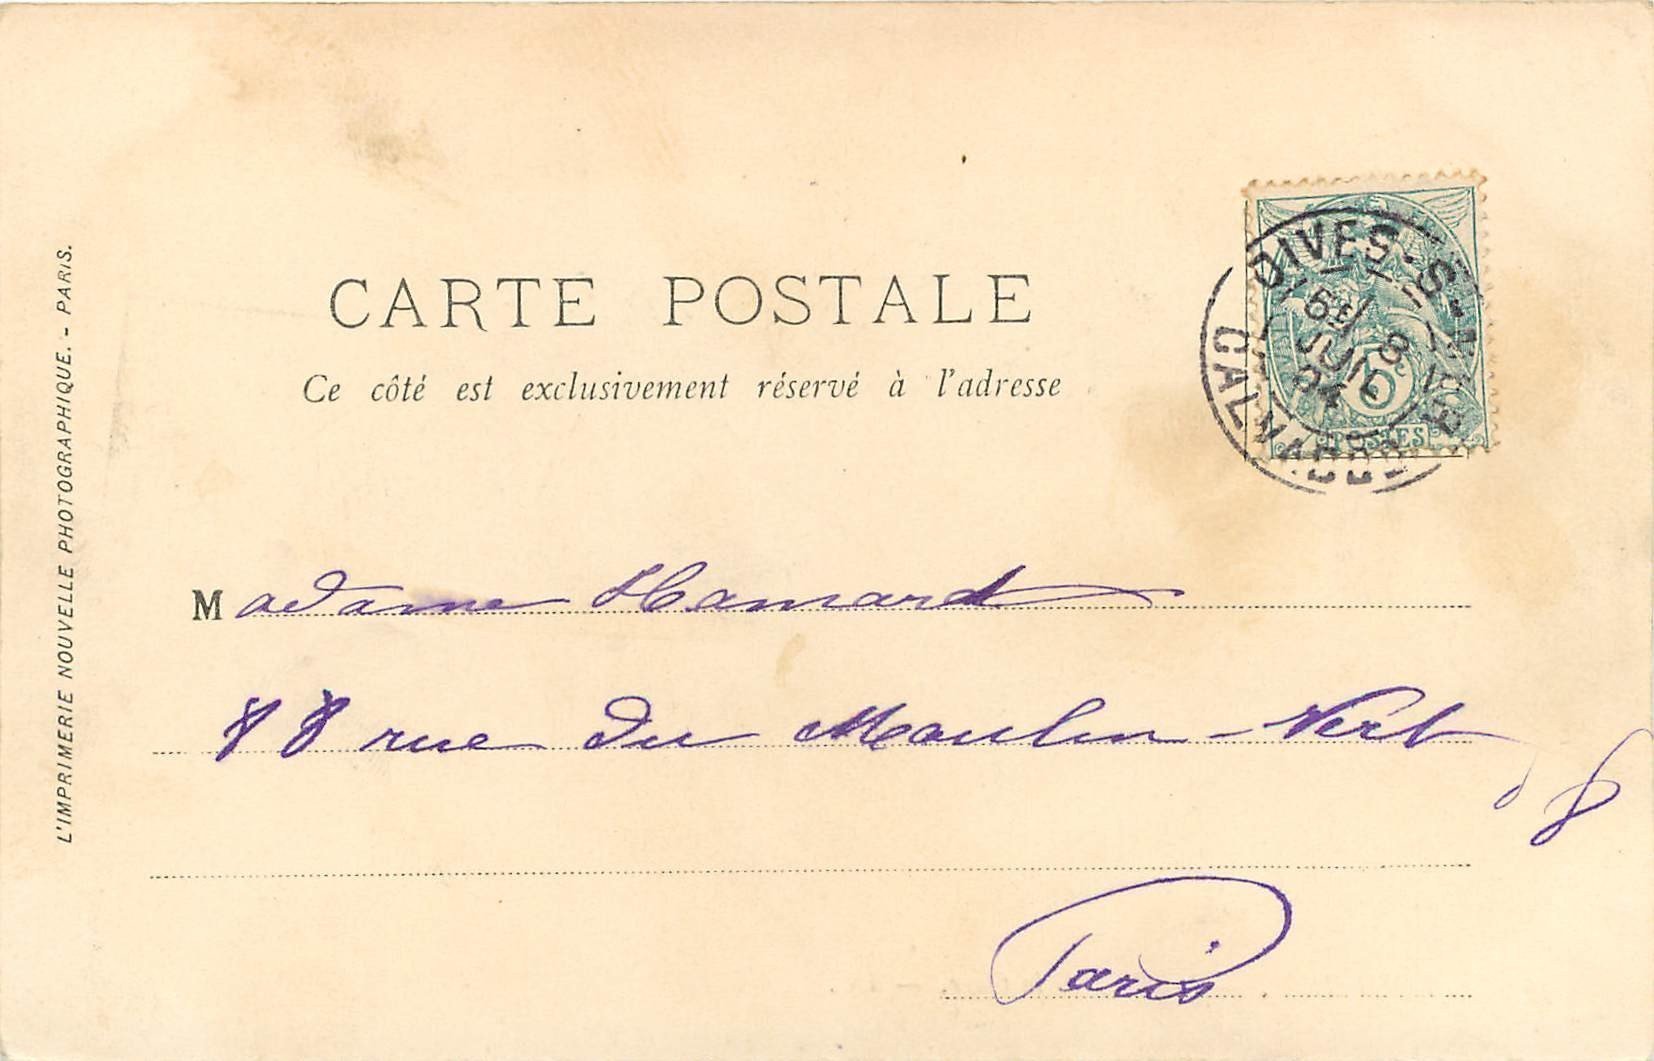 CARTE POSTALE
Ce côté est exclusivement réservé à l'adresse
Madame Hamard
88 rue du Moulin-Vert
Paris
L'IMPRIMERIE NOUVELLE PHOTOGRAPHIQUE. - PARIS.
DIVES-S-
CALVADOS
JUIL
04
5c
POSTES